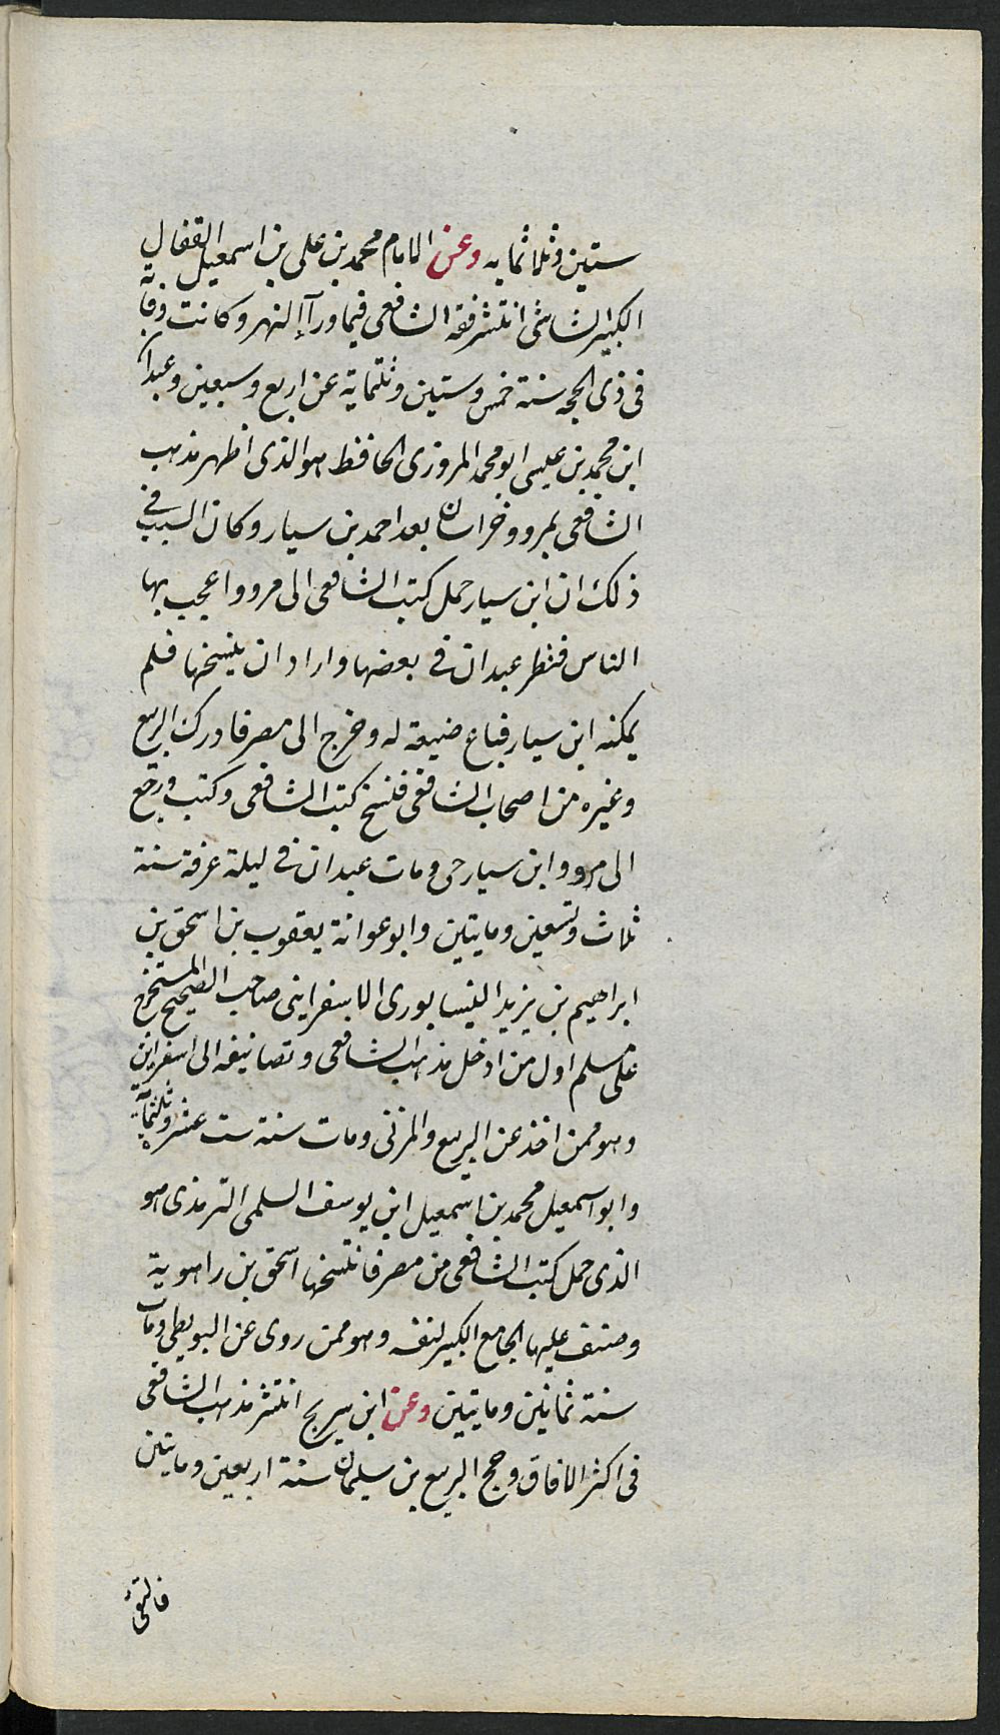 ستين وثلاثمايه وعن الامام محمد بن على بن اسمعيل القفال
الكبير الشاشى انتشر فقه الشافعى فيما ورآ النهر وكانت وفاته
فى ذى الحجه سنة خمس وستين وثلثماية عن اربع وسبعين وعبدان
ابن محمد بن عيسى ابو محمد المروزى الحافظ هو الذى اظهر مذهب
الشافعى بمرو وخراسان بعد احمد بن سيار وكان السبب فى
ذلك ان ابن سيار حمل كتب الشافعى الى مرو واعجب بها
الناس فنظر عبدان فى بعضها واراد ان ينسخها فلم
يمكنه ابن سيار فباع ضيعة له وخرج الى مصر فادرك الربيع
وغيره من اصحاب الشافعى فنسخ كتب الشافعى وكتب ورجع
الى مرو وابن سيار حى ومات عبدان فى ليلة عرفة سنة
ثلاث وتسعين ومايتين وابو عوانة يعقوب بن اسحق بن
ابراهيم بن يزيد النيسابورى الاسفراينى صاحب الصحيح المستخرج
على مسلم اول من ادخل مذهب الشافعى وتصانيفه الى اسفراين
وهو ممن اخذ عن الربيع والمزنى ومات سنة ست عشر وثلثماية
وابو اسمعيل محمد بن اسمعيل ابن يوسف السلمى الترمذى هو
الذى حمل كتب الشافعى من مصر فانتسخها اسحق بن راهوية
وصنف عليها الجامع الكبير لنفسه وهو ممن روى عن البويطى ومات
سنة ثمانين ومايتين وعن ابن سريج انتشر مذهب الشافعى
فى اكثر الافاق وحج الربيع بن سليمان سنة اربعين ومايتين
فالتقى